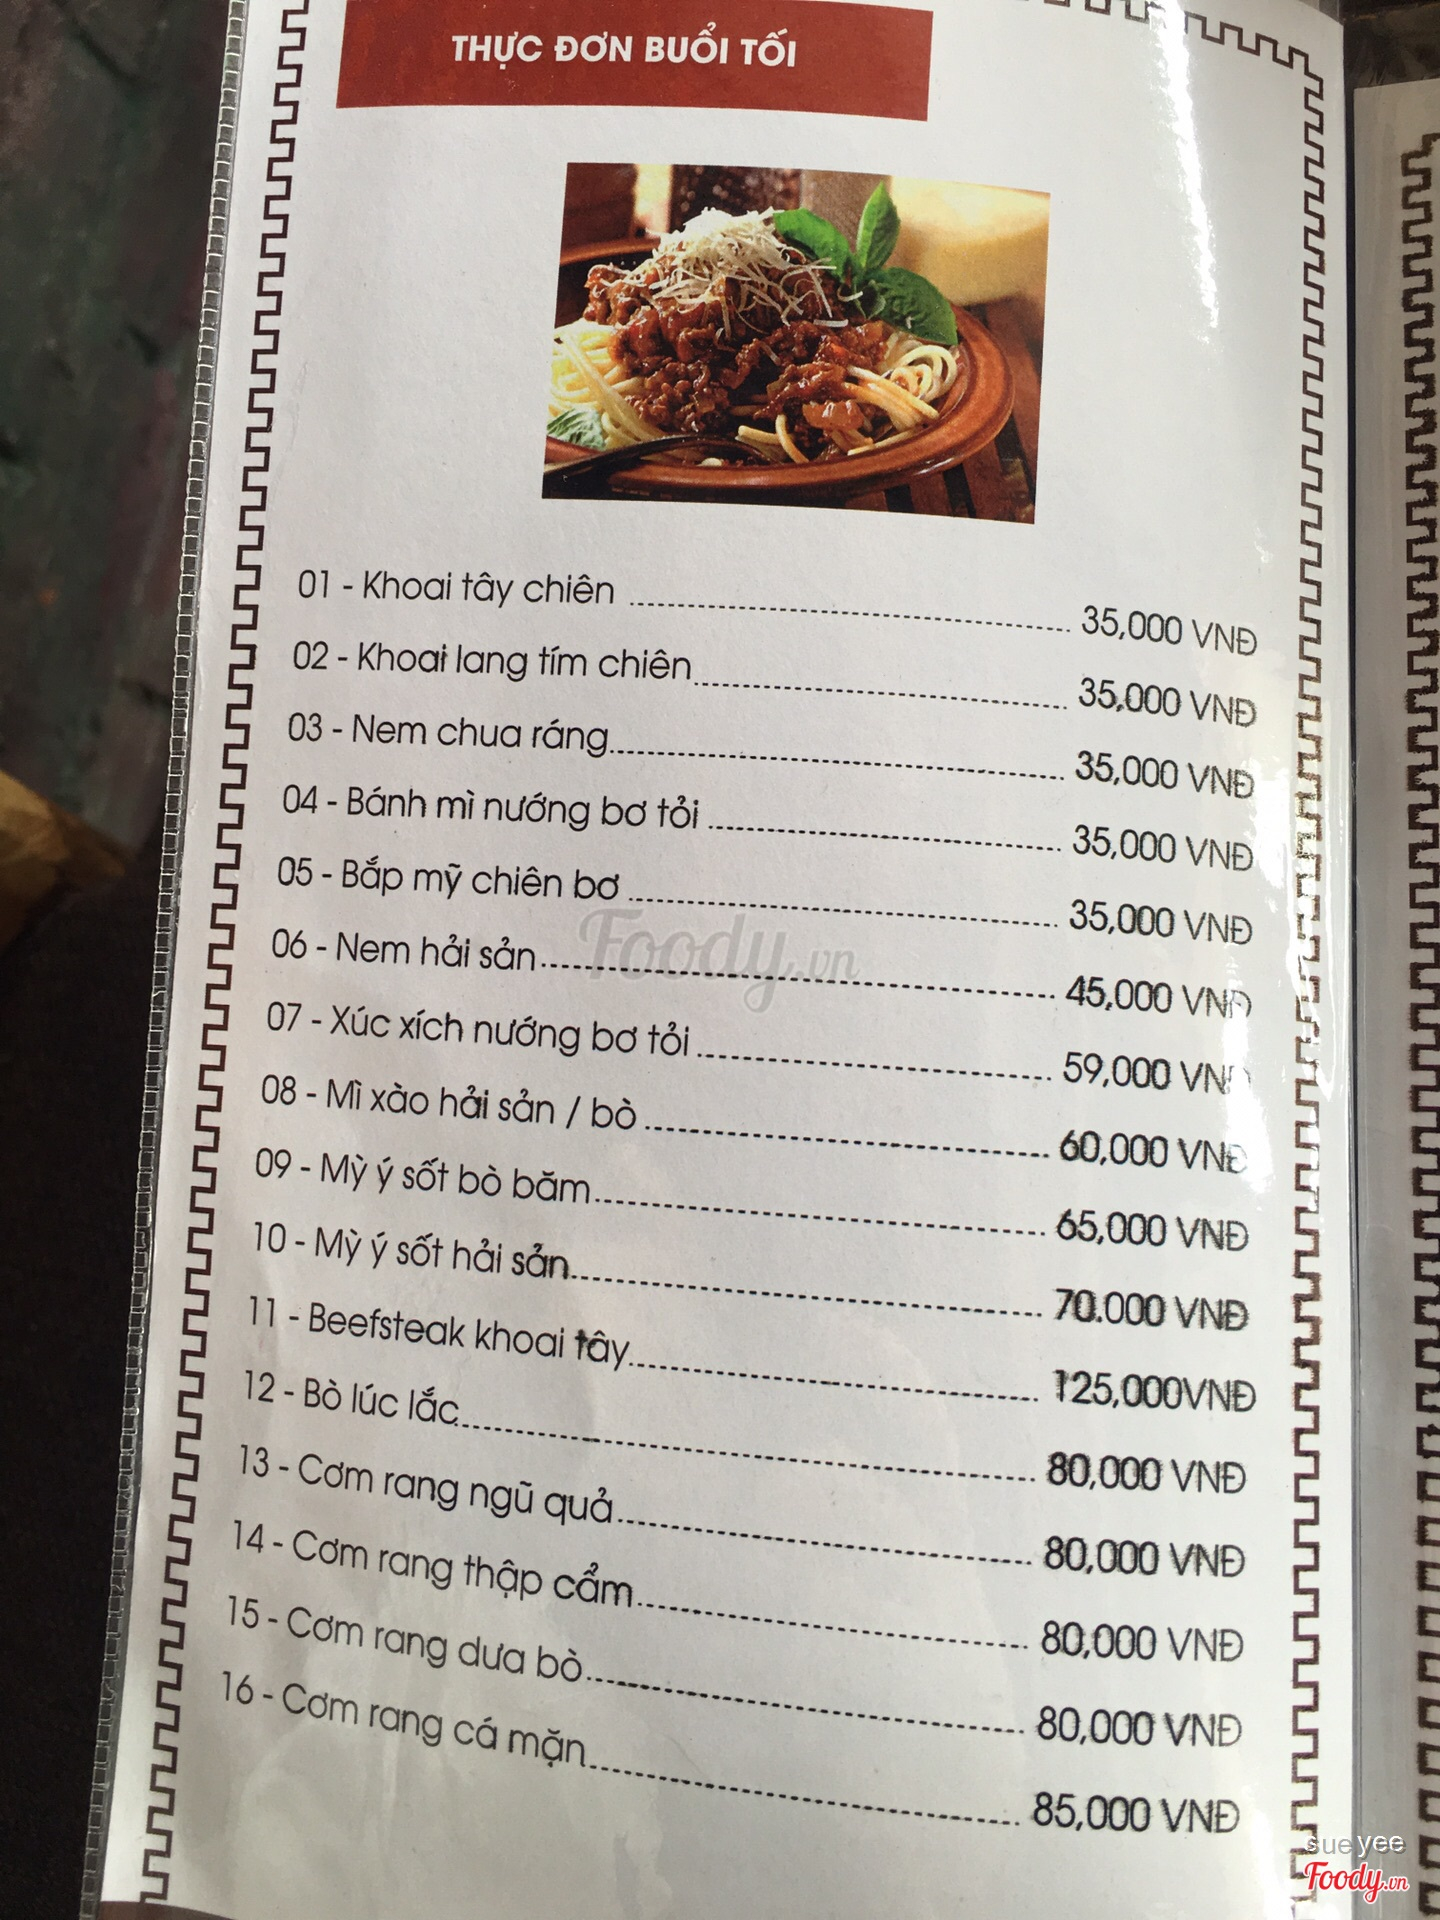 THỰC ĐƠN BUỔI TỐI
01 - Khoai tây chiên 35,000 VNĐ
02 - Khoai lang tím chiên 35,000 VNĐ
03 - Nem chua ráng 35,000 VNĐ
04 - Bánh mì nướng bơ tỏi 35,000 VNĐ
05 - Bắp mỹ chiên bơ 35,000 VNĐ
06 - Nem hải sản 45,000 VNĐ
07 - Xúc xích nướng bơ tỏi 59,000 VNĐ
08 - Mì xào hải sản / bò 60,000 VNĐ
09 - Mỳ ý sốt bò băm 65,000 VNĐ
10 - Mỳ ý sốt hải sản 70.000 VNĐ
11 - Beefsteak khoai tây 125,000VNĐ
12 - Bò lúc lắc 80,000 VNĐ
13 - Cơm rang ngũ quả 80,000 VNĐ
14 - Cơm rang thập cẩm 80,000 VNĐ
15 - Cơm rang dưa bò 80,000 VNĐ
16 - Cơm rang cá mặn 85,000 VNĐ
Foody.vn
sueyee
Foody.vn